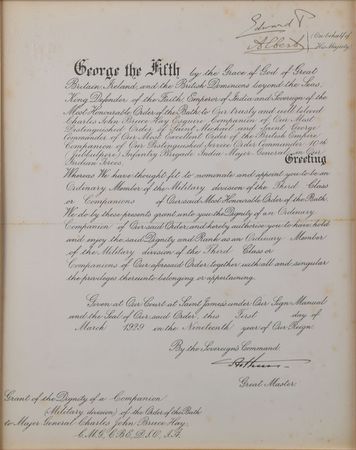 Edward P.
Albert
(On behalf of
His Majesty.
George the Fifth by the Grace of God of Great
Britain, Ireland, and the British Dominions beyond the Seas,
King, Defender of the Faith, Emperor of India and Sovereign of the
Most Honourable Order of the Bath to Our Trusty and well beloved
Charles John Bruce Hay, Esquire, Companion of Our Most
Distinguished Order of Saint Michael and Saint George
Commander of Our Most Excellent Order of the British Empire
Companion of Our Distinguished Service Order Commander 10th
(Jubbulpore) Infantry Brigade India Major General in Our
Indian Forces,
Greeting
Whereas We have thought fit to nominate and appoint you to be an
Ordinary Member of the Military division of the Third Class
or Companions of Our said Most Honourable Order of the Bath.
We do by these presents grant unto you the Dignity of an Ordinary
Companion of Our said Order, and hereby authorise you to have, hold
and enjoy the said Dignity and Rank as an Ordinary Member
of the Military division of the Third Class or
Companions of Our aforesaid Order, together with all and singular
the privileges thereunto belonging or appertaining.
Given at Our Court at Saint James's under Our Sign Manual
and the Seal of Our said Order, this First day of
March 1929 in the Nineteenth year of Our Reign.
By the Sovereign's Command.
Arthur
Great Master.
Grant of the Dignity of a Companion
(Military division) of the Order of the Bath
to Major General Charles John Bruce Hay,
C.M.G., C.B.E., D.S.O., I.A.